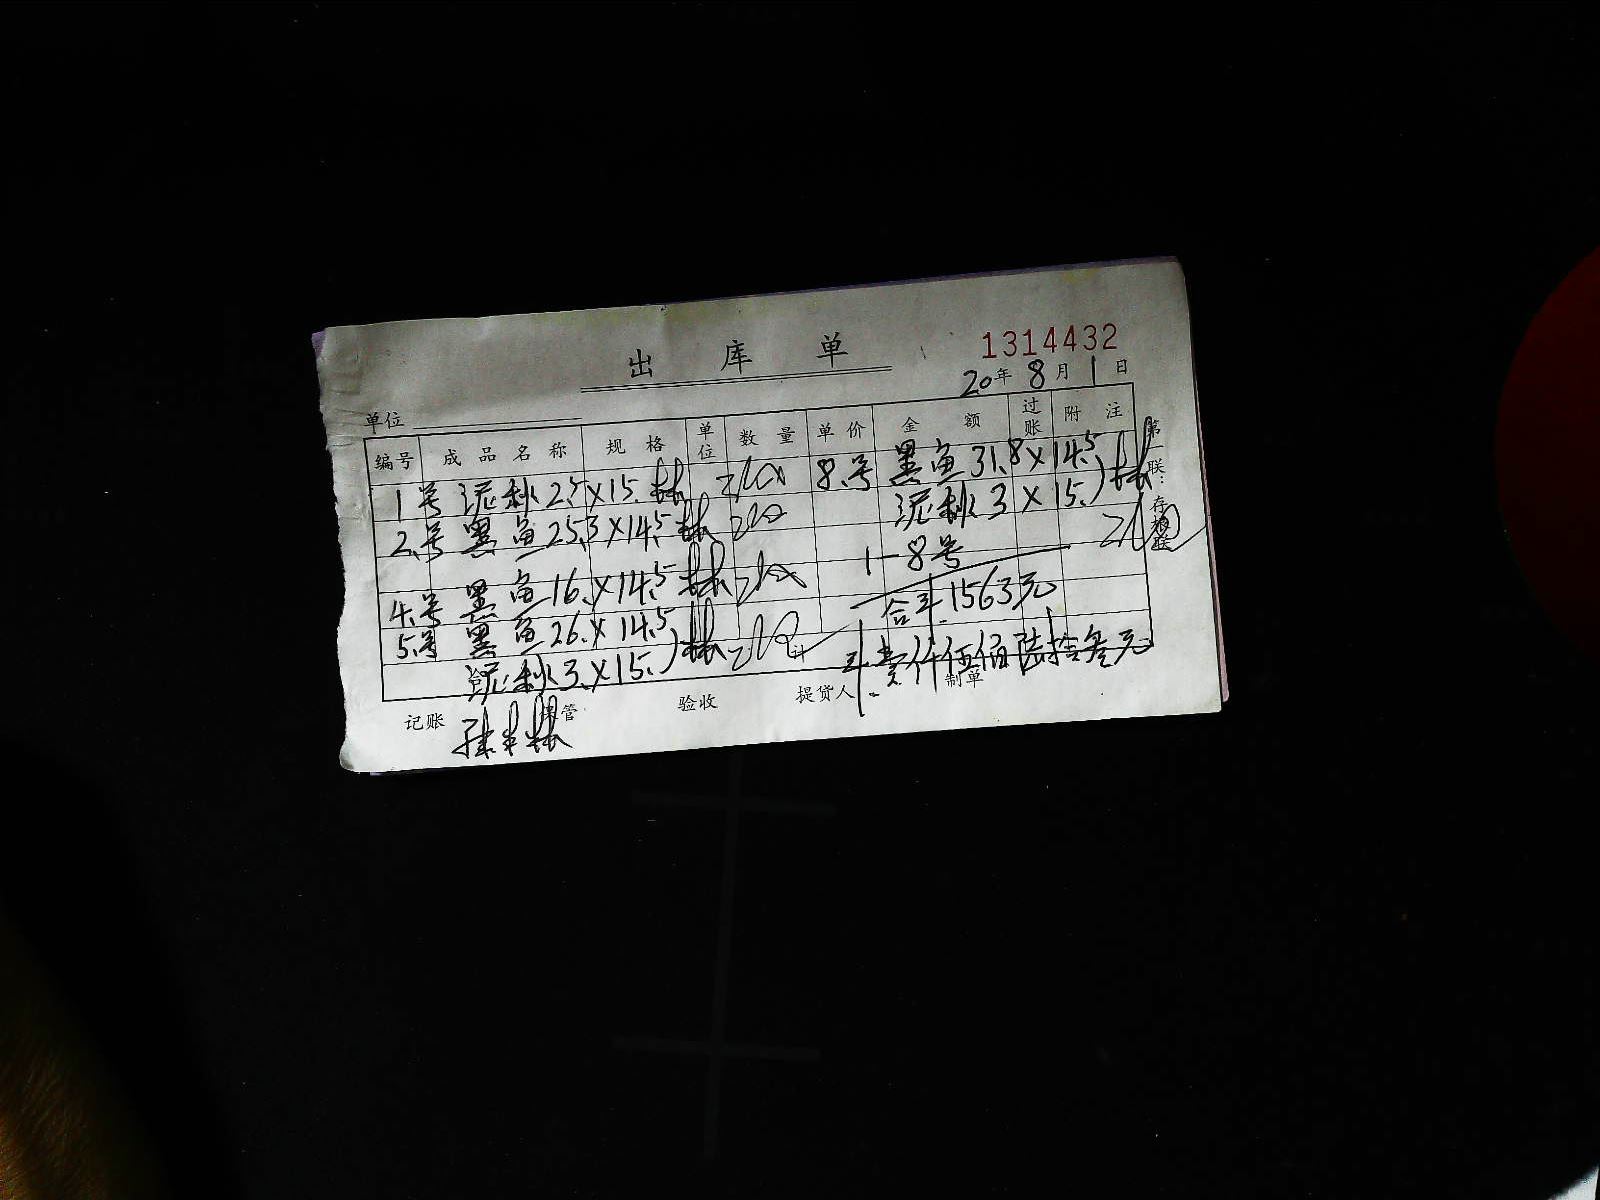 出库单
1314432
20年8月1日
单位
编号 成品名称 规格 单位 数量 单价 金额 过账 附注
1号 泥秋 2.5×15. 林 8.号 黑鱼 31.8×14.5
2.号 黑鱼 25.3×14.5 林 泥秋 3×15. 林
1-8号
4.号 黑鱼 16.×14.5 林 合计 1563元
5.号 黑鱼 26.×14.5 林 壹仟伍佰陆拾叁元
泥秋 3.×15.
第一联:存根联
记账 保管 验收 提货人 制单